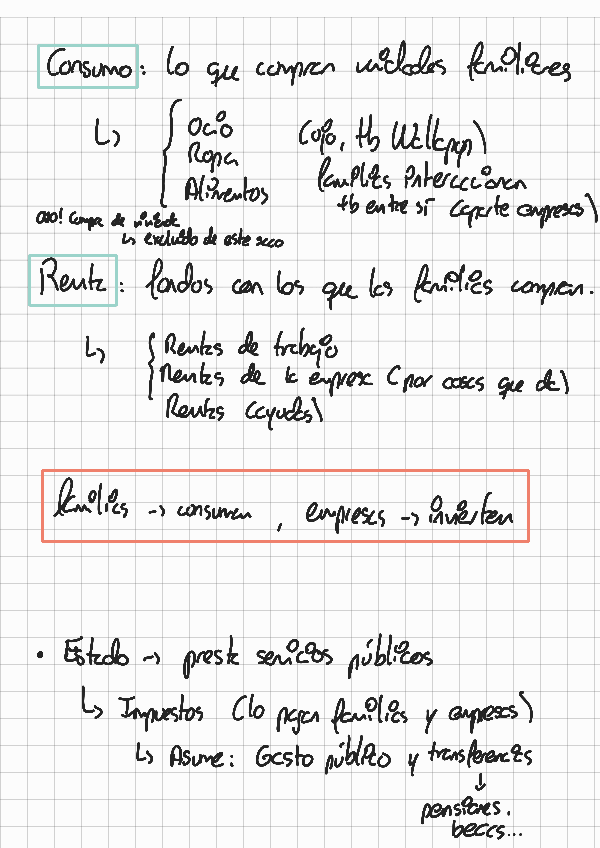 Consumo: lo que compran unidades familiares
↳ Ocio (ojo, tb Wallapop)
Ropa familias interaccionan
Alimentos tb entre sí (aparte empresas)
ojo! compra de vivienda
↳ excluido de este saco
Renta: fondos con los que las familias compran.
↳ Rentas de trabajo
Rentas de la empresa (por cosas que da)
Rentas (ayudas)
familias → consumen, empresas → invierten
• Estado → presta servicios públicos
↳ Impuestos (lo pagan familias y empresas)
↳ Asume: Gasto público y transferencias
↓
pensiones.
becas...